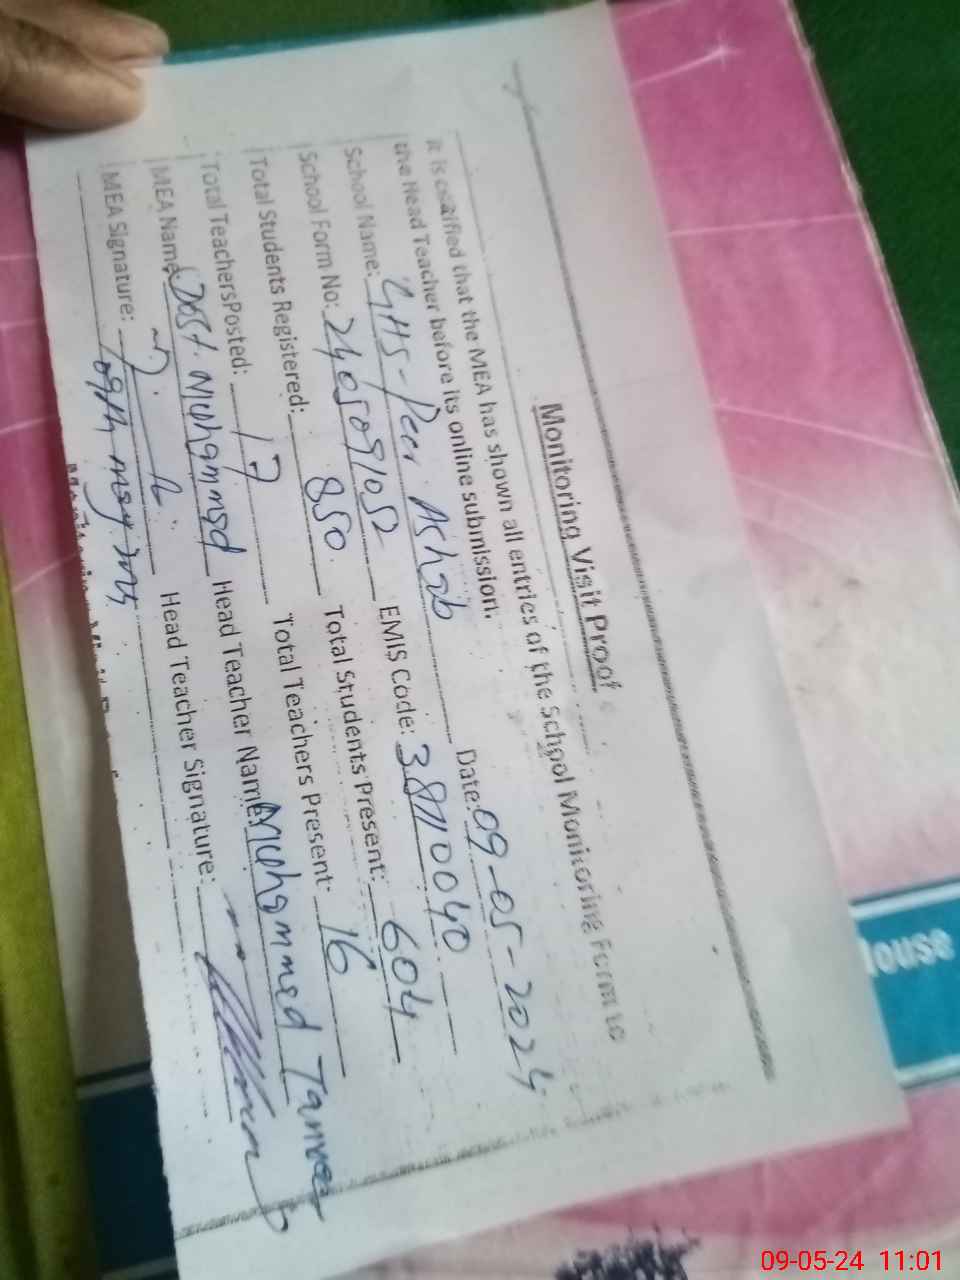 Monitoring Visit Proof
It is certified that the MEA has shown all entries of the School Monitoring Form to
the Head Teacher before its online submission.
School Name: GHS-Peer Ashab Date: 09-05-2024
School Form No: 2405091052 EMIS Code: 38110040
Total Students Registered: 850 Total Students Present: 604
Total Teachers Posted: 17 Total Teachers Present: 16
MEA Name: Dost Muhammad Head Teacher Name: Muhammad Tanveer
MEA Signature: Head Teacher Signature:
09th may
ouse
09-05-24 11:01